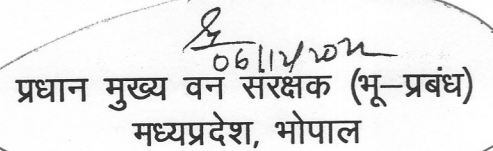 06/12/2022
प्रधान मुख्य वन संरक्षक (भू–प्रबंध)
मध्यप्रदेश, भोपाल